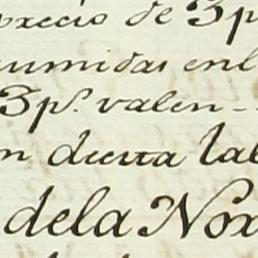 precio de 3p
umidas enl
3p.s valen-
n dicta lal
dela Nox